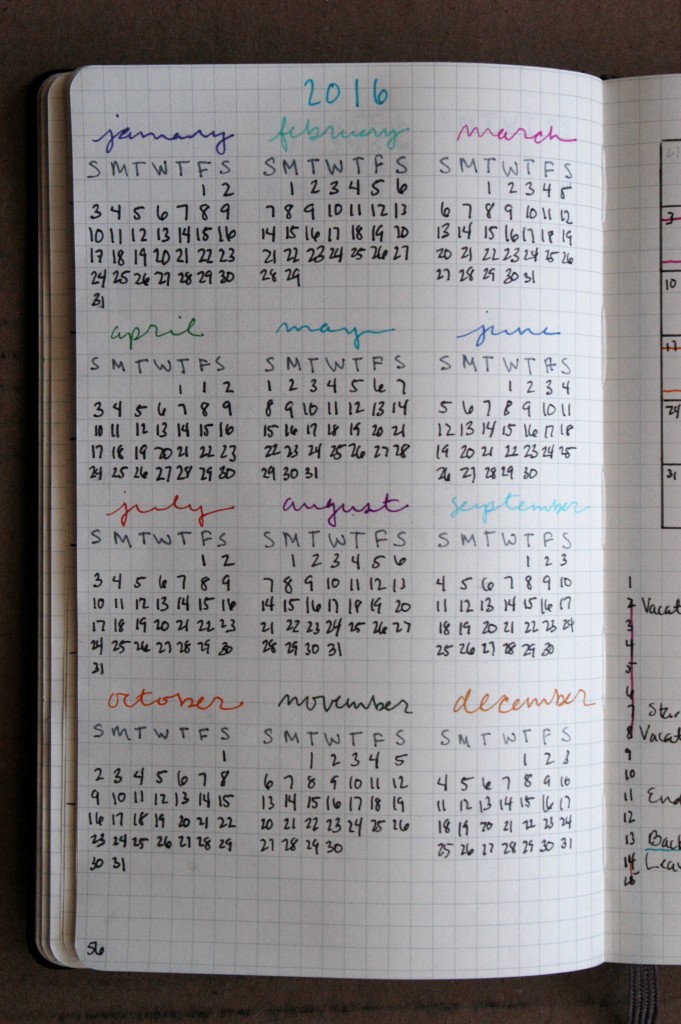 2016
january
S M T W T F S
1 2
3 4 5 6 7 8 9
10 11 12 13 14 15 16
17 18 19 20 21 22 23
24 25 26 27 28 29 30
31
february
S M T W T F S
1 2 3 4 5 6
7 8 9 10 11 12 13
14 15 16 17 18 19 20
21 22 23 24 25 26 27
28 29
march
S M T W T F S
1 2 3 4 5
6 7 8 9 10 11 12
13 14 15 16 17 18 19
20 21 22 23 24 25 26
27 28 29 30 31
april
S M T W T F S
1 1 2
3 4 5 6 7 8 9
10 11 12 13 14 15 16
17 18 19 20 21 22 23
24 25 26 27 28 29 30
may
S M T W T F S
1 2 3 4 5 6 7
8 9 10 11 12 13 14
15 16 17 18 19 20 21
22 23 24 25 26 27 28
29 30 31
june
S M T W T F S
1 2 3 4
5 6 7 8 9 10 11
12 13 14 15 16 17 18
19 20 21 22 23 24 25
26 27 28 29 30
july
S M T W T F S
1 2
3 4 5 6 7 8 9
10 11 12 13 14 15 16
17 18 19 20 21 22 23
24 25 26 27 28 29 30
31
august
S M T W T F S
1 2 3 4 5 6
7 8 9 10 11 12 13
14 15 16 17 18 19 20
21 22 23 24 25 26 27
28 29 30 31
september
S M T W T F S
1 2 3
4 5 6 7 8 9 10
11 12 13 14 15 16 17
18 19 20 21 22 23 24
25 26 27 28 29 30
october
S M T W T F S
1
2 3 4 5 6 7 8
9 10 11 12 13 14 15
16 17 18 19 20 21 22
23 24 25 26 27 28 29
30 31
november
S M T W T F S
1 2 3 4 5
6 7 8 9 10 11 12
13 14 15 16 17 18 19
20 21 22 23 24 25 26
27 28 29 30
december
S M T W T F S
1 2 3
4 5 6 7 8 9 10
11 12 13 14 15 16 17
18 19 20 21 22 23 24
25 26 27 28 29 30 31
56
3
10
17
24
31
1
2 Vacat
3
4
5
6
7 Star
8 Vacat
9
10
11 End
12
13 Back
14 Lea
15